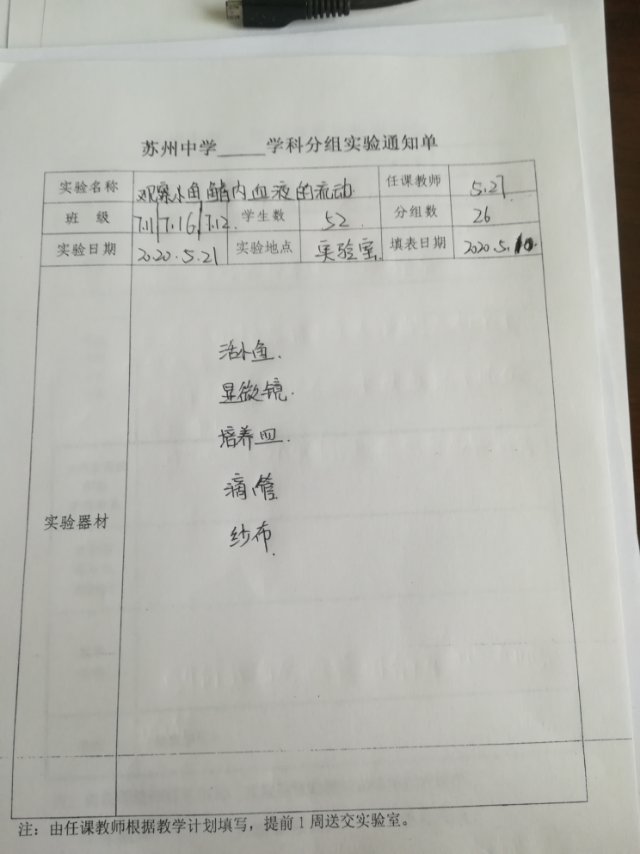 苏州中学_____学科分组实验通知单
实验名称 观察小鱼尾鳍内血液的流动 任课教师 5.27
班 级 7.11 7.16 7.12. 学生数 52 分组数 26
实验日期 2020.5.21 实验地点 实验室. 填表日期 2020.5.10.
活小鱼.
显微镜.
培养皿.
滴管
实验器材
纱布.
注：由任课教师根据教学计划填写，提前1周送交实验室。